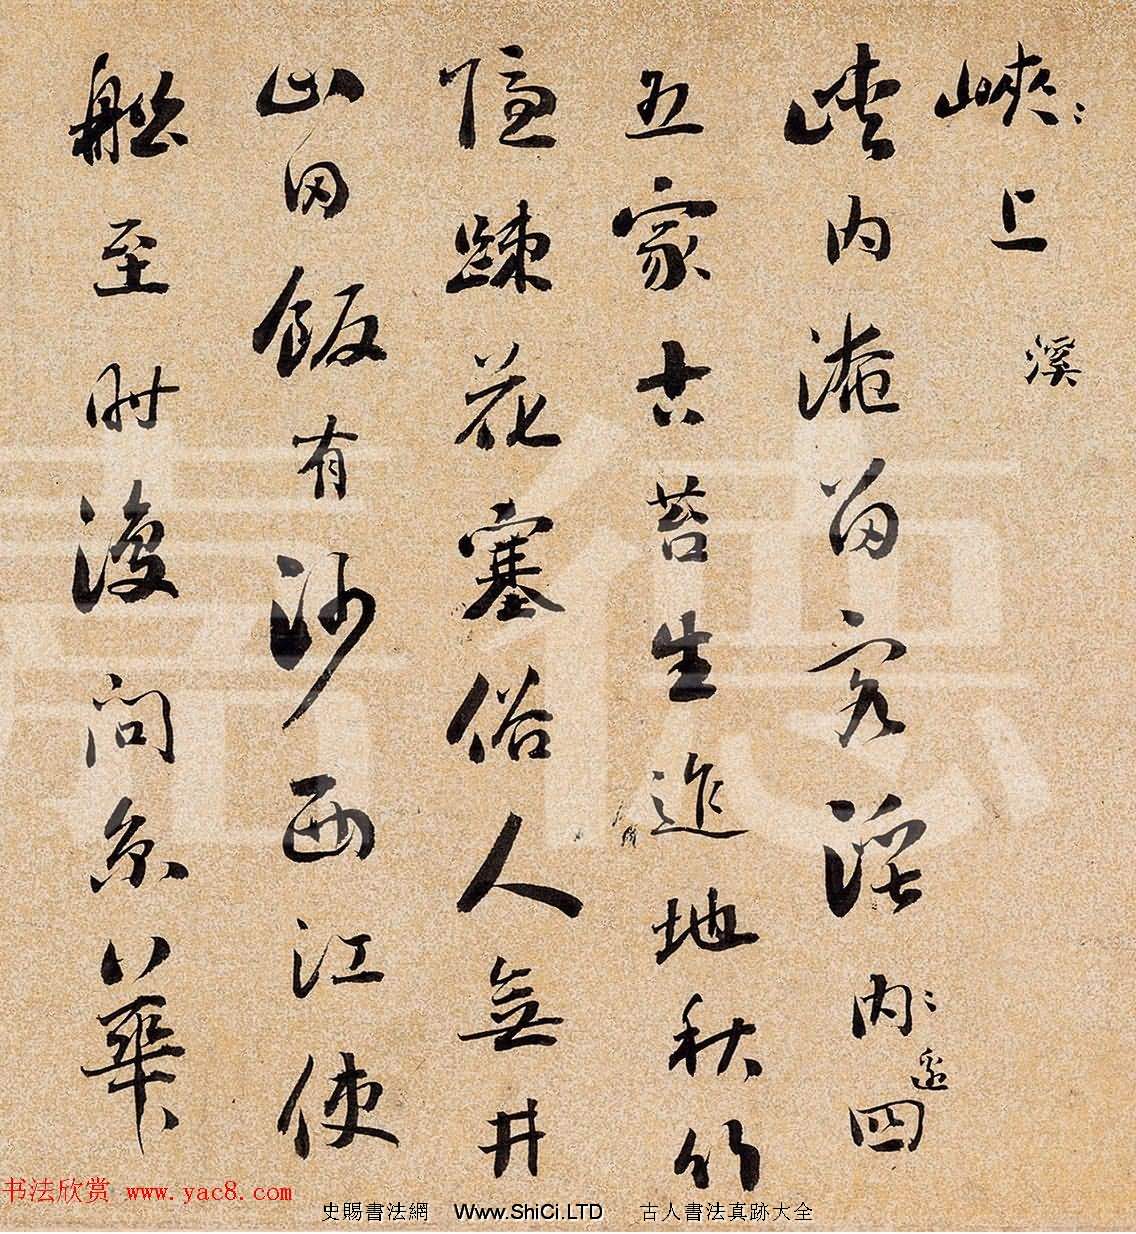 峽：上 溪
峽内淹留客内：邊四
五家古苔生迮地秋竹
隱踈花塞俗人無井
山田飯有沙西江使
舩至時復問京華
嘉德
书法欣赏 www.yac8.com
史賜書法網 Www.ShiCi.LTD 古人書法真跡大全